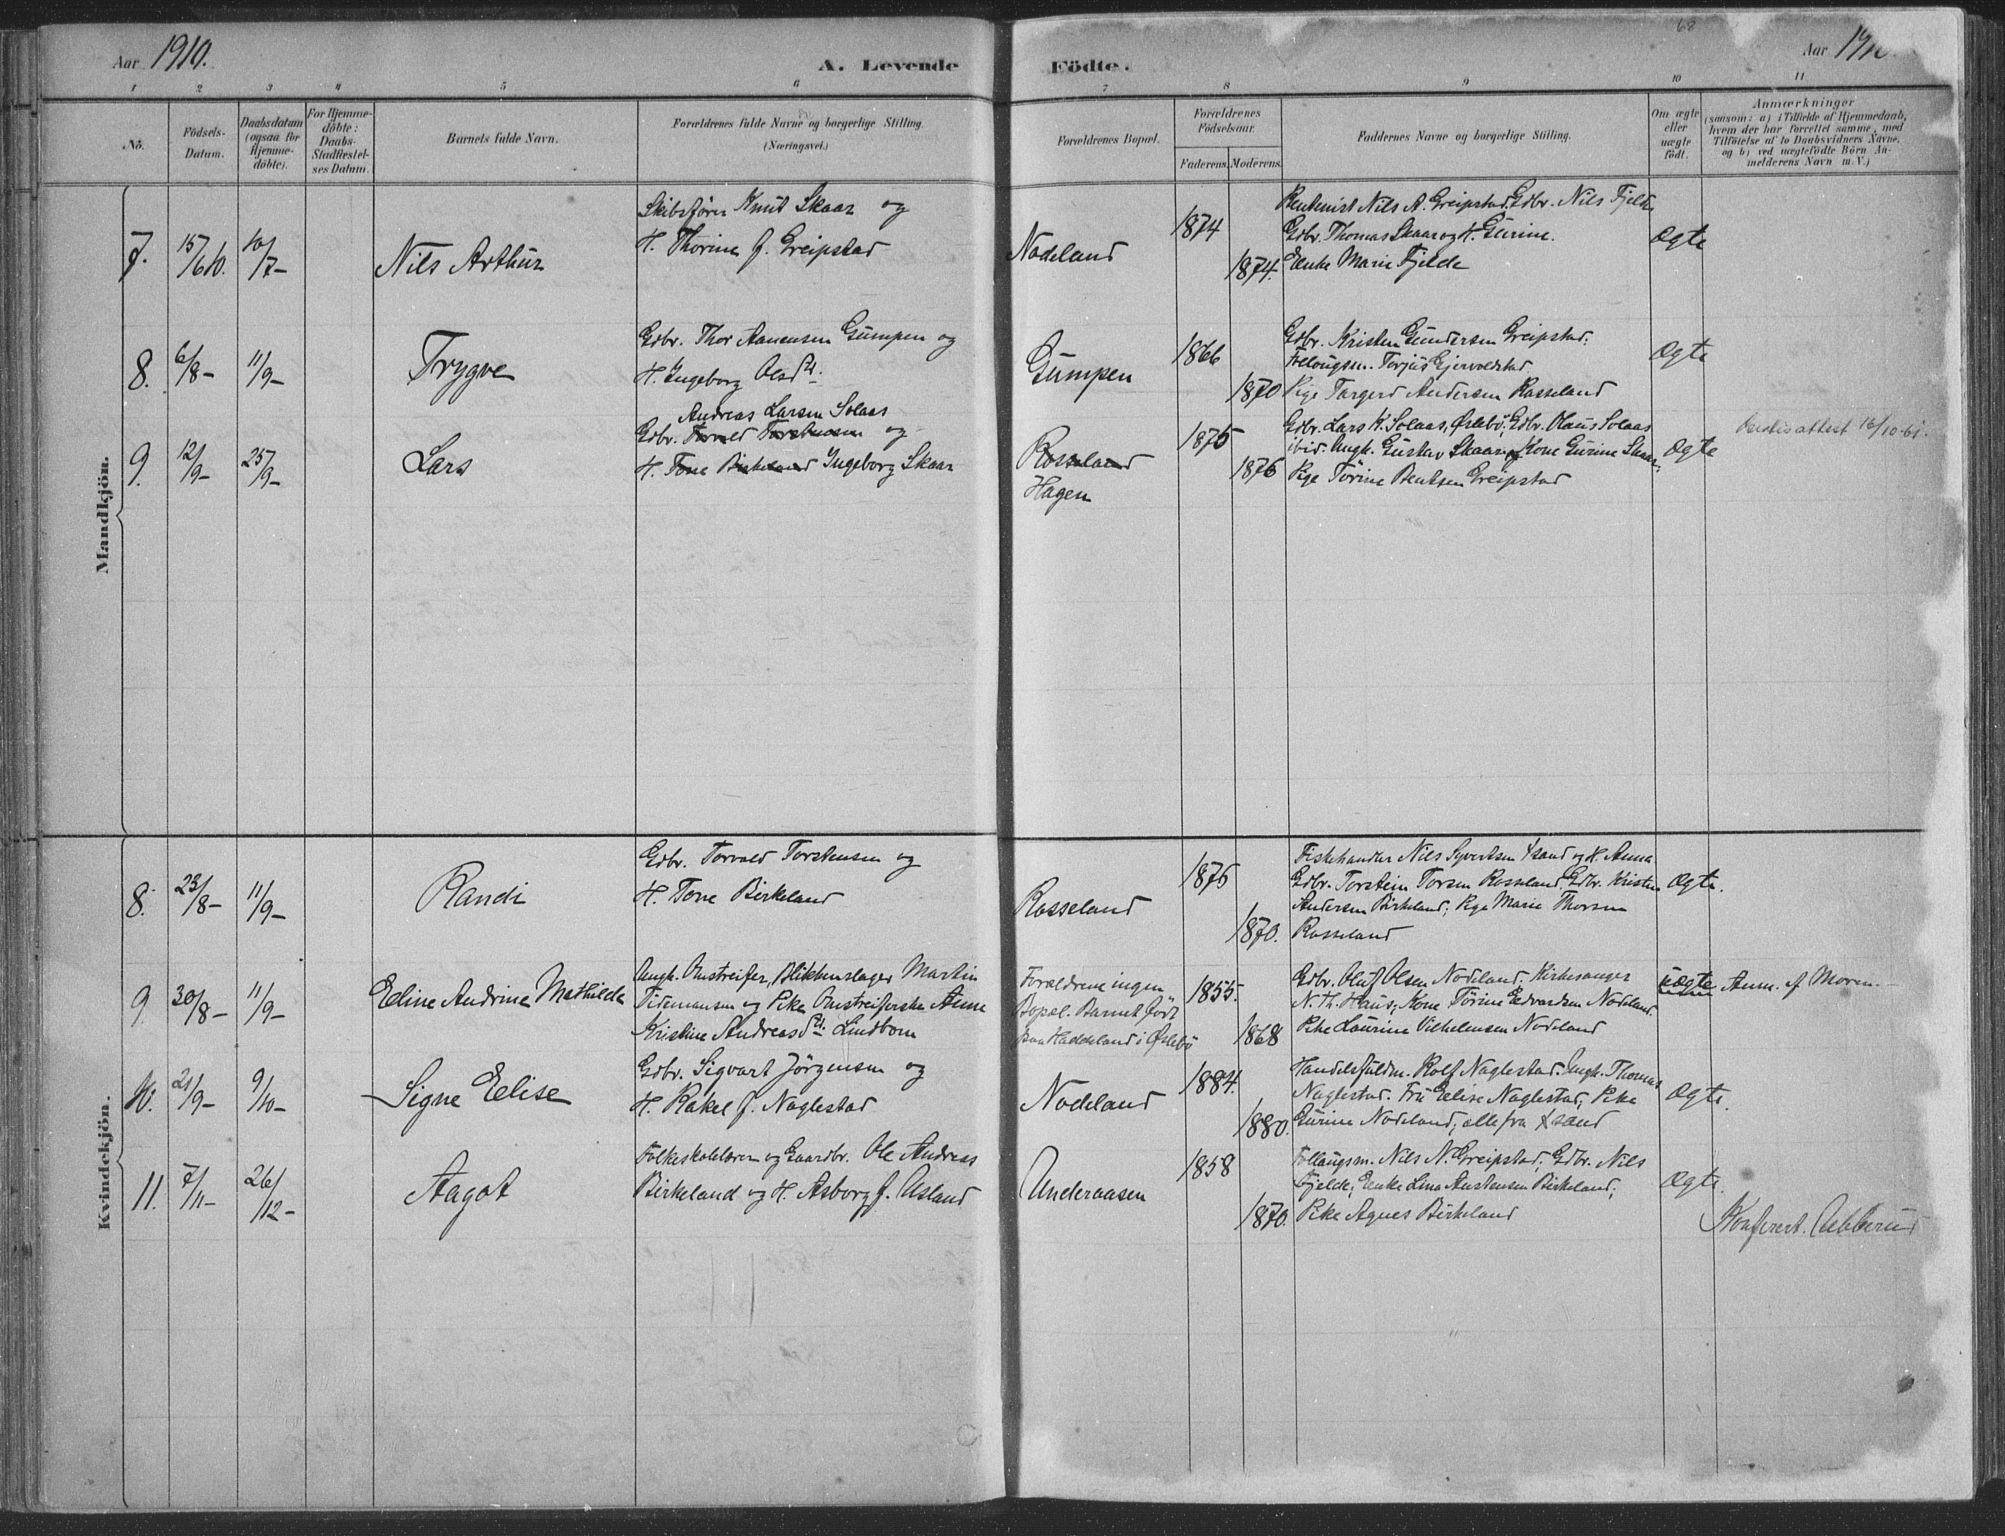 68
Aar 1910.
A. Levende
Födte.
Aar 1910
1 2 3 4 5 6 7 8 9 10 11
No.
Födsels-
Datum.
Daabsdatum
(ogsaa for
Hjemme-
döbte).
For Hjemme-
döbte:
Daabs-
Stadfæstel-
ses Datum.
Barnets fulde Navn.
Forældrenes fulde Navne og borgerlige Stilling.
(Næringsvei.)
Forældrenes Bopæl.
Forældrenes
Födselsaar.
Faderens. Moderens.
Faddernes Navne og borgerlige Stilling.
Om ægte
eller
uægte
födt.
Anmærkninger
(saasom: a) i Tilfælde af Hjemmedaab,
hvem der har forrettet samme, med
Tilföielse af to Daabsvidners Navne,
og b) ved uægtefödte Börn An-
melderens Navn m. V.)
Mandkjön.
7.
15/6 10.
10/7-
Nils Arthur
Skibsförer Knut Skaar og
H. Thorine f. Greipstad
Nodeland
1874
1874.
Rentenist Nils A. Greipstad, Gdbr. Nils Fjelde
Gdbr. Thomas Skaar og H. Gurine.
Enke Marie Fjelde
Ægte
8.
6/8-
11/9-
Trygve
Gdbr. Thor Aanensen Gumpen og
H. Ingeborg Olsdt.
Gumpen
1866
1870
Gdbr. Kristen Gundersen Greipstad.
Torjus Gjervoldstad
Pige Targerd Andersen Rosseland
Ægte
9.
12/9-
25/9-
Lars
Andreas Larsen Solaas
Gdbr. Torvald Torstensen og
H. Tone Birkeland Ingeborg Skaar
Rosseland
Hagen
1875
1876
Gdbr. Lars K. Solaas, Øslebö, Gdbr. Olaus Solaas
ibid. Ungk. Gustav Skaar, Kone Gurine Skaar,
Pige Törine Bentsen Greipstad
Ægte
attest 16/10-61.
Kvindekjön.
8.
23/8-
11/9-
Randi
Gdbr. Torvald Torstensen og
H. Tone Birkeland
Rosseland
1876
1870.
Fiskehandler Nils Syvertsen Xsand og H. Anna
Gdbr. Torstein Torsen Rosseland, Gdbr. Kristen
Andersen Birkeland; Pige Marie Thorsen
Rosseland
Ægte.
9
30/8-
11/9-
Eline Andrine Mathilde
Ungk. Omstreifer, Blikkenslager Martin
Tidemansen og Pike Omstreiferske Anne
Kristine Andreasdt. Lindbom
Forældrene ingen
Bopæl. Barnet födt
paa Haddeland i Øslebö
1855.
1868
Gdbr. Olaf Olsen Nodeland. Kirkesanger
N. Th. Haus; Kone Törine Edvardsen Nodeland.
Pike Laurine Vilhelmsen Nodeland
uægte
Anm. af Moren.
10.
21/9-
9/10-
Signe Elise
Gdbr. Sigvart Jørgensen og
H. Rakel f. Naglestad
Nodeland
1884.
1880.
Handelsfuldm. Rolf Naglestad. Ungk. Thomas
Naglestad. Fru Elise Naglestad; Pike
Gurine Nodeland; alle fra Xsand
Ægte.
11.
7/11-
26/12-
Aagot
Folkeskolelærer og Gaardbr. Ole Andreas
Birkeland og H. Asborg f. Usland
Underaasen
1858
1870.
Nils N. Greipstad; Gdbr. Nils
Fjelde; Enke Lina Austensen Birkeland;
Pike Agnes Birkeland
Ægte.
Konferert.